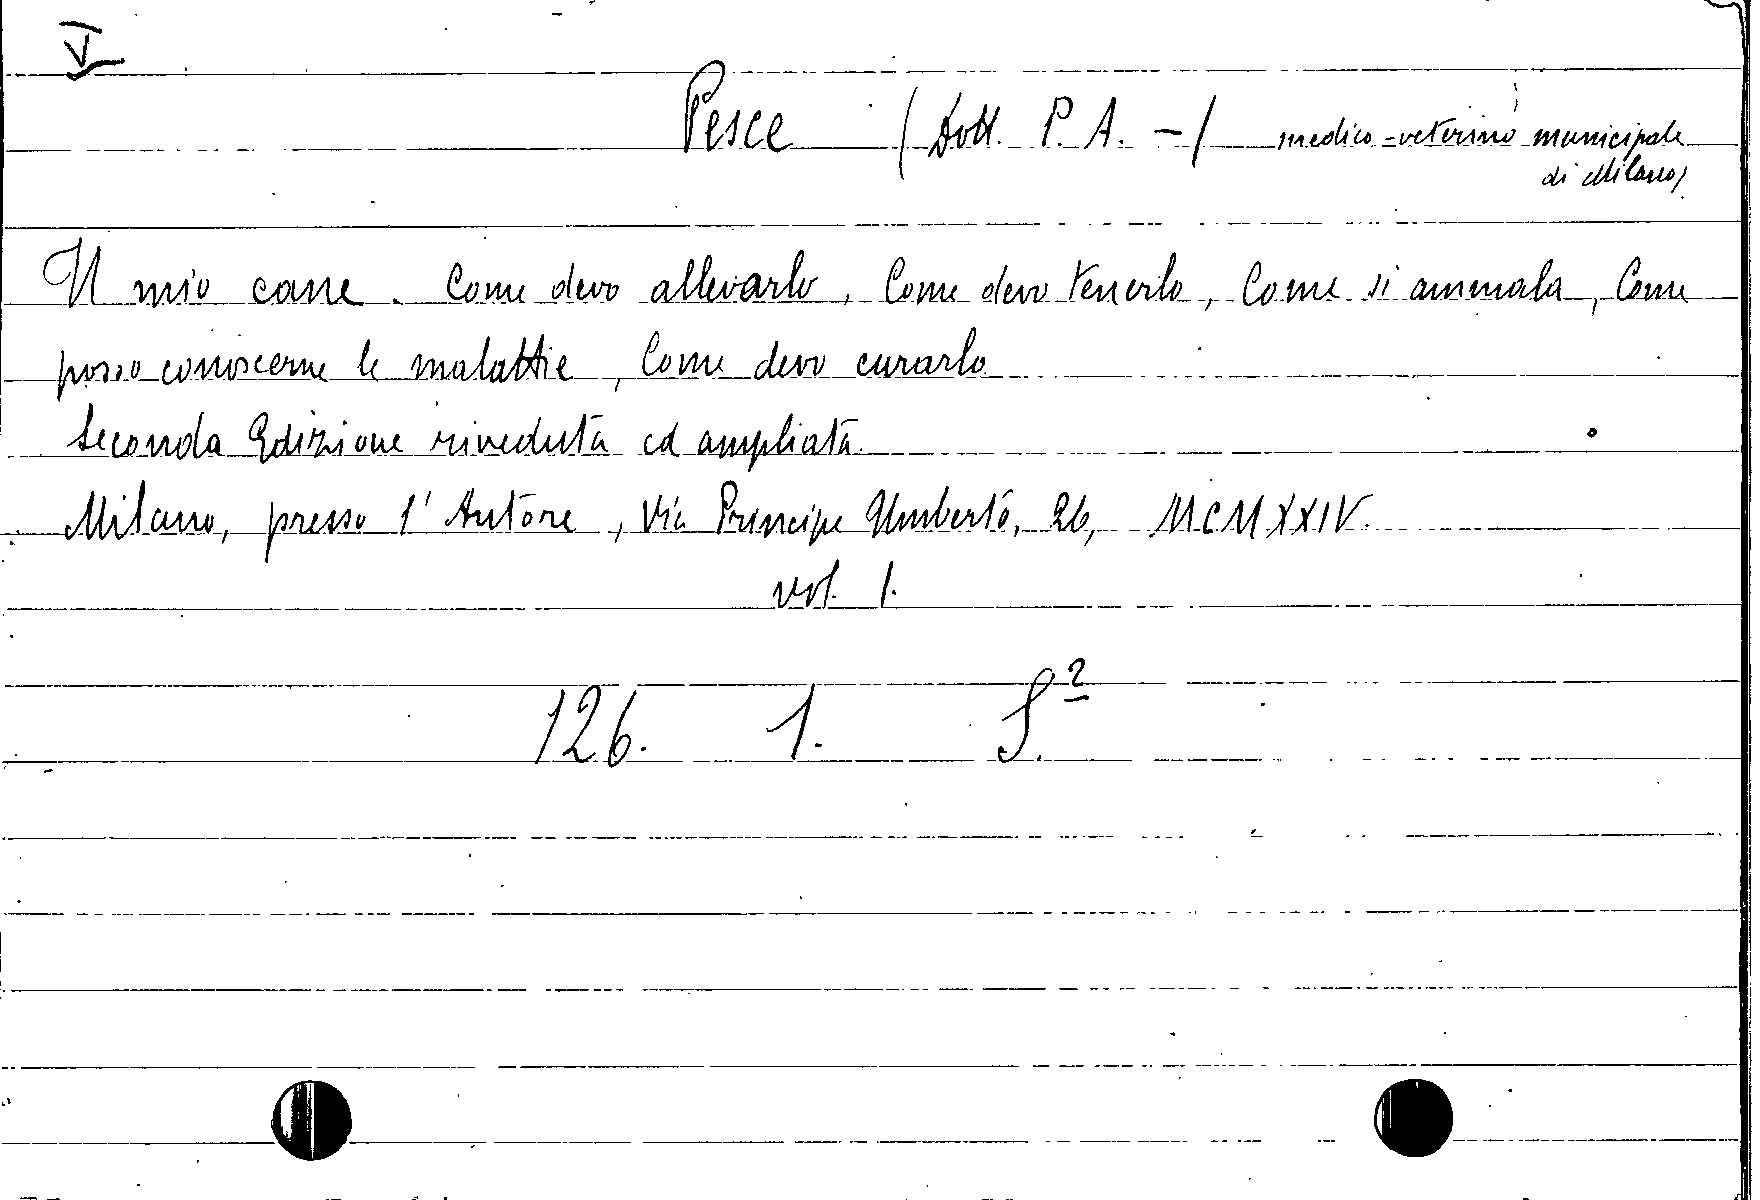 V
Pesce (Dott. P. A. -/ medico-veterino municipale
di Milano)
Il mio cane. Come devo allevarlo, Come devo tenerlo, Come si ammala, Come
posso conoscerne le malattie, Come devo curarlo
Seconda Edizione riveduta ed ampliata.
Milano, presso l'Autore, Via Principe Umberto, 26, MCMXXIV.
vol. 1.
126. 1. S.²